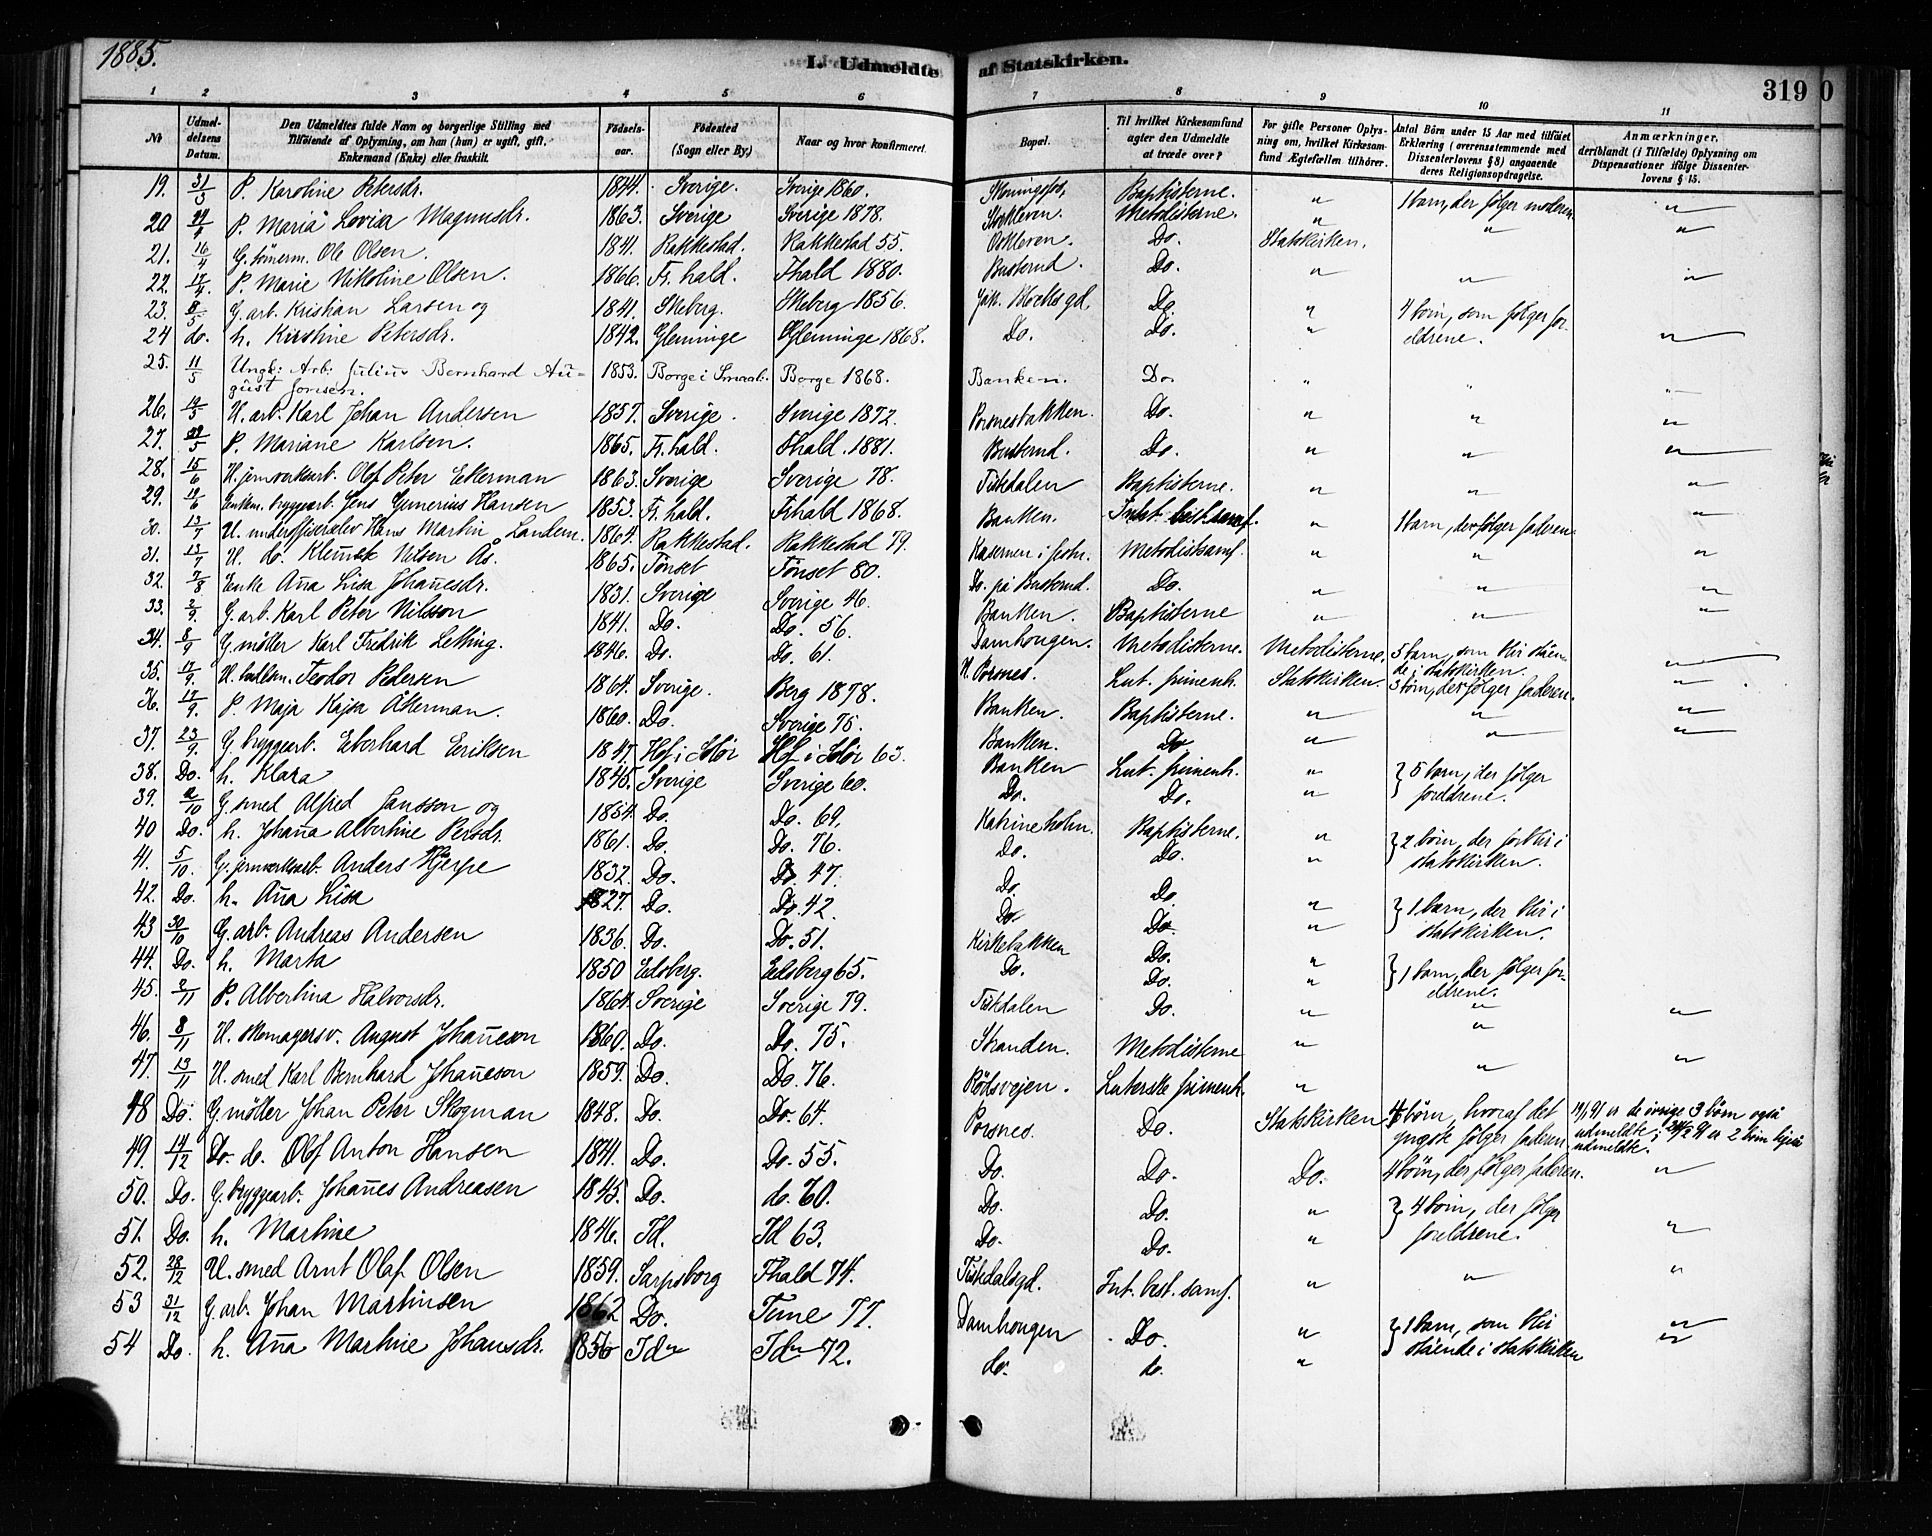 1885.
I. Udmeldte af Statskirken.
319
0
1 2 3 4 5 6 7 8 9 10 11
No
Udmel-
delsens
Datum.
Den Udmeldtes fulde Navn og borgerlige Stilling med
Tilføiende af Oplysning, om han (hun) er ugift, gift,
Enkemand (Enke) eller fraskilt.
Fødsels-
aar.
Fødested
(Sogn eller By.)
Naar og hvor konfirmeret.
Bopæl.
Til hvilket Kirkesamfund
agter den Udmeldte
at træde over?
For gifte Personer Oplys-
ning om, hvilket Kirkesam-
fund Ægtefællen tilhører.
Antal Børn under 15 Aar med tilføiet
Erklæring (overensstemmende med
Dissenterlovens § 8) angaaende
deres Religionsopdragelse.
Anmærkninger,
deriblandt (i Tilfælde) Oplysning om
Dispensationer ifølge Dissenter-
lovens § 15.
19. 31/3 P. Karoline Petersdr. 1844. Sverige. Sverige 1860. Baptisterne. " 1 barn, der følger moderen "
20 P. Maria Lovisa Magnusdr. 1863. Sverige Sverige 1878. Metodisterne. " " "
21. 16/4 G. tømerm. Ole Olsen. 1841. Rakkestad. Rakkestad 55. Do. Statskirken.
22. 17/4. P. Marie Nikoline Olsen. 1866. Fr. hald. Fhald 1880. Busterud. Do. " " "
23. 8/5 G. arb. Kristian Larsen og 1841. Skeberg. Skeberg 1856. Do. " 4 børn, som følger for-
24 do. h. Kirstine Petersdr. 1842. Glemminge Glemminge 1868. Do. Do. " eldrene. "
25. 11/5 Ungk: Arb: Julius Bernhard Au-
gust Jonsen. 1853. Borge i Smaal. Borge 1868. Banken. Do. " " "
26. 19/5 U. arb. Karl Johan Andersen 1857. Sverige. Sverige 1872. Porsnesbakken. Do. " " "
27. 22/5 P. Mariane Karlsen. 1865. Fr. hald. Fhald. 1881. Busterud. Do. " " "
28. 15/6 U. jernverksarb. Olof Peter Ekerman 1863. Sverige Sverige 78. Tistedalen Baptisterne. " " "
29. 19/6 Enkem. bryggearb. Jens Gunerius Hansen 1853. Fr. hald. Frhald 1868. Banken. Intet best. samf. " 1 barn, der følger faderen "
30. 13/7 U. underoffiserselev Hans Martin Landem. 1864. Rakkestad. Rakkestad 79. Kasernen i festn. Metodistsamf. " " "
31. 13/7 U. do. Klemet Nilsen Ås. 1865. Tönset Tönset 80. Do. på Busterud. Do. " " "
32. 7/8 Enke Ana Lisa Johanesdr. 1831. Sverige Sverige 46. Banken. Baptisterne " " "
33. 2/9 G. arb. Karl Peter Nilsson 1841. Do. Do. 56. Damhougen. Metodisterne. Metodisterne. 5 barn, som blir ståen-
de i statskirken. "
34. 8/9 G. møller Karl Fredrik Letting. 1846. Do. Do. 61. N. Porsnes. Lut. frimenh. Statskirken. 3 børn, der følger faderen. "
35. 17/9. Teodor Pedersen 1864. Sverige. Berg 1878. Banken. Baptisterne. " " "
36. 17/9. P. Maja Kajsa Åkerman. 1860. Do. Sverige 75. Banken. Do " " "
37. 23/9. G. bryggearb. Eberhard Eriksen 1847. Hof i Solør Hof i Solør 63. Banken Lut. frimenh. " } 5 barn, der følger
38. Do. h. Klara 1845. Sverige Sverige 60. Do. Do. " foreldrene.
39. 2/10 G. smed Alfred Jansson og 1854. Do. Do. 69. Katrineholm. Baptisterne. " } 2 børn, der forblir i
40 Do. h. Johana Albertine Persdr. 1861. Do. Do. 76. Do. Do. " statskirken.
41. 5/10. G. jernverksarb. Anders Hjerpe 1832. Do. Do. 47. Do. Do. " } 1 barn, der blir i
42. Do. h. Ana Lisa 1827. Do. Do. 42. Do. Do. " statskirken.
43 30/10 G. arb. Andreas Andersen 1836. Do. Do. 51. Kirkebakken Do. " } 1 barn, der følger for-
44. Do. h. Marta 1850 Eidsberg. Eidsberg 65. Do. Do. " eldrene.
45. 2/11 P. Albertina Halvorsdr. 1864 Sverige Sverige 79. Tistedalen Do. " " "
46. 8/11 U. skomagersv. August Johaneson 1860. Do. Do. 75. Stranden. Metodisterne " "
47. 13/11 U. smed Karl Bernhard Johaneson 1859. Do. Do. 76. Rödsvejen. Luterske frimenh. " " "
48 Do. G. møller Johan Peter Skogman 1848. Do. Do. 64. Porsnes. Do. Statskirken 4 børn, hvoraf det
yngste følger faderen 19/1 91 er de øvrige 3 børn også
udmeldte; er 2 børn
udmeldte.
49. 14/12 Do. do. Olof Anton Hansen 1841. Do. Do. 55. Do. Do. Do. 4 børn, der følger faderen. "
50. Do. G. bryggearb. Johanes Andreasen 1845. Do. do. 60. Do. Do. " } 4 børn, der følger
51. Do. h. Martine 1846. Id. Id 63. Do. Do. " foreldrene. "
52. 28/12 U. smed Arnt Olaf Olsen 1859. Sarpsborg Fhald 74. Tistedalsgd. Int. best. samf. " " "
53 31/12 G. arb. Johan Martinsen 1862 Do. Tune 77. Damhougen Do. " } 1 barn, som blir "
54 Do. h. Ana Martine Johansdr. 1856 Id Id 72. do. do. " stående i statskirken "